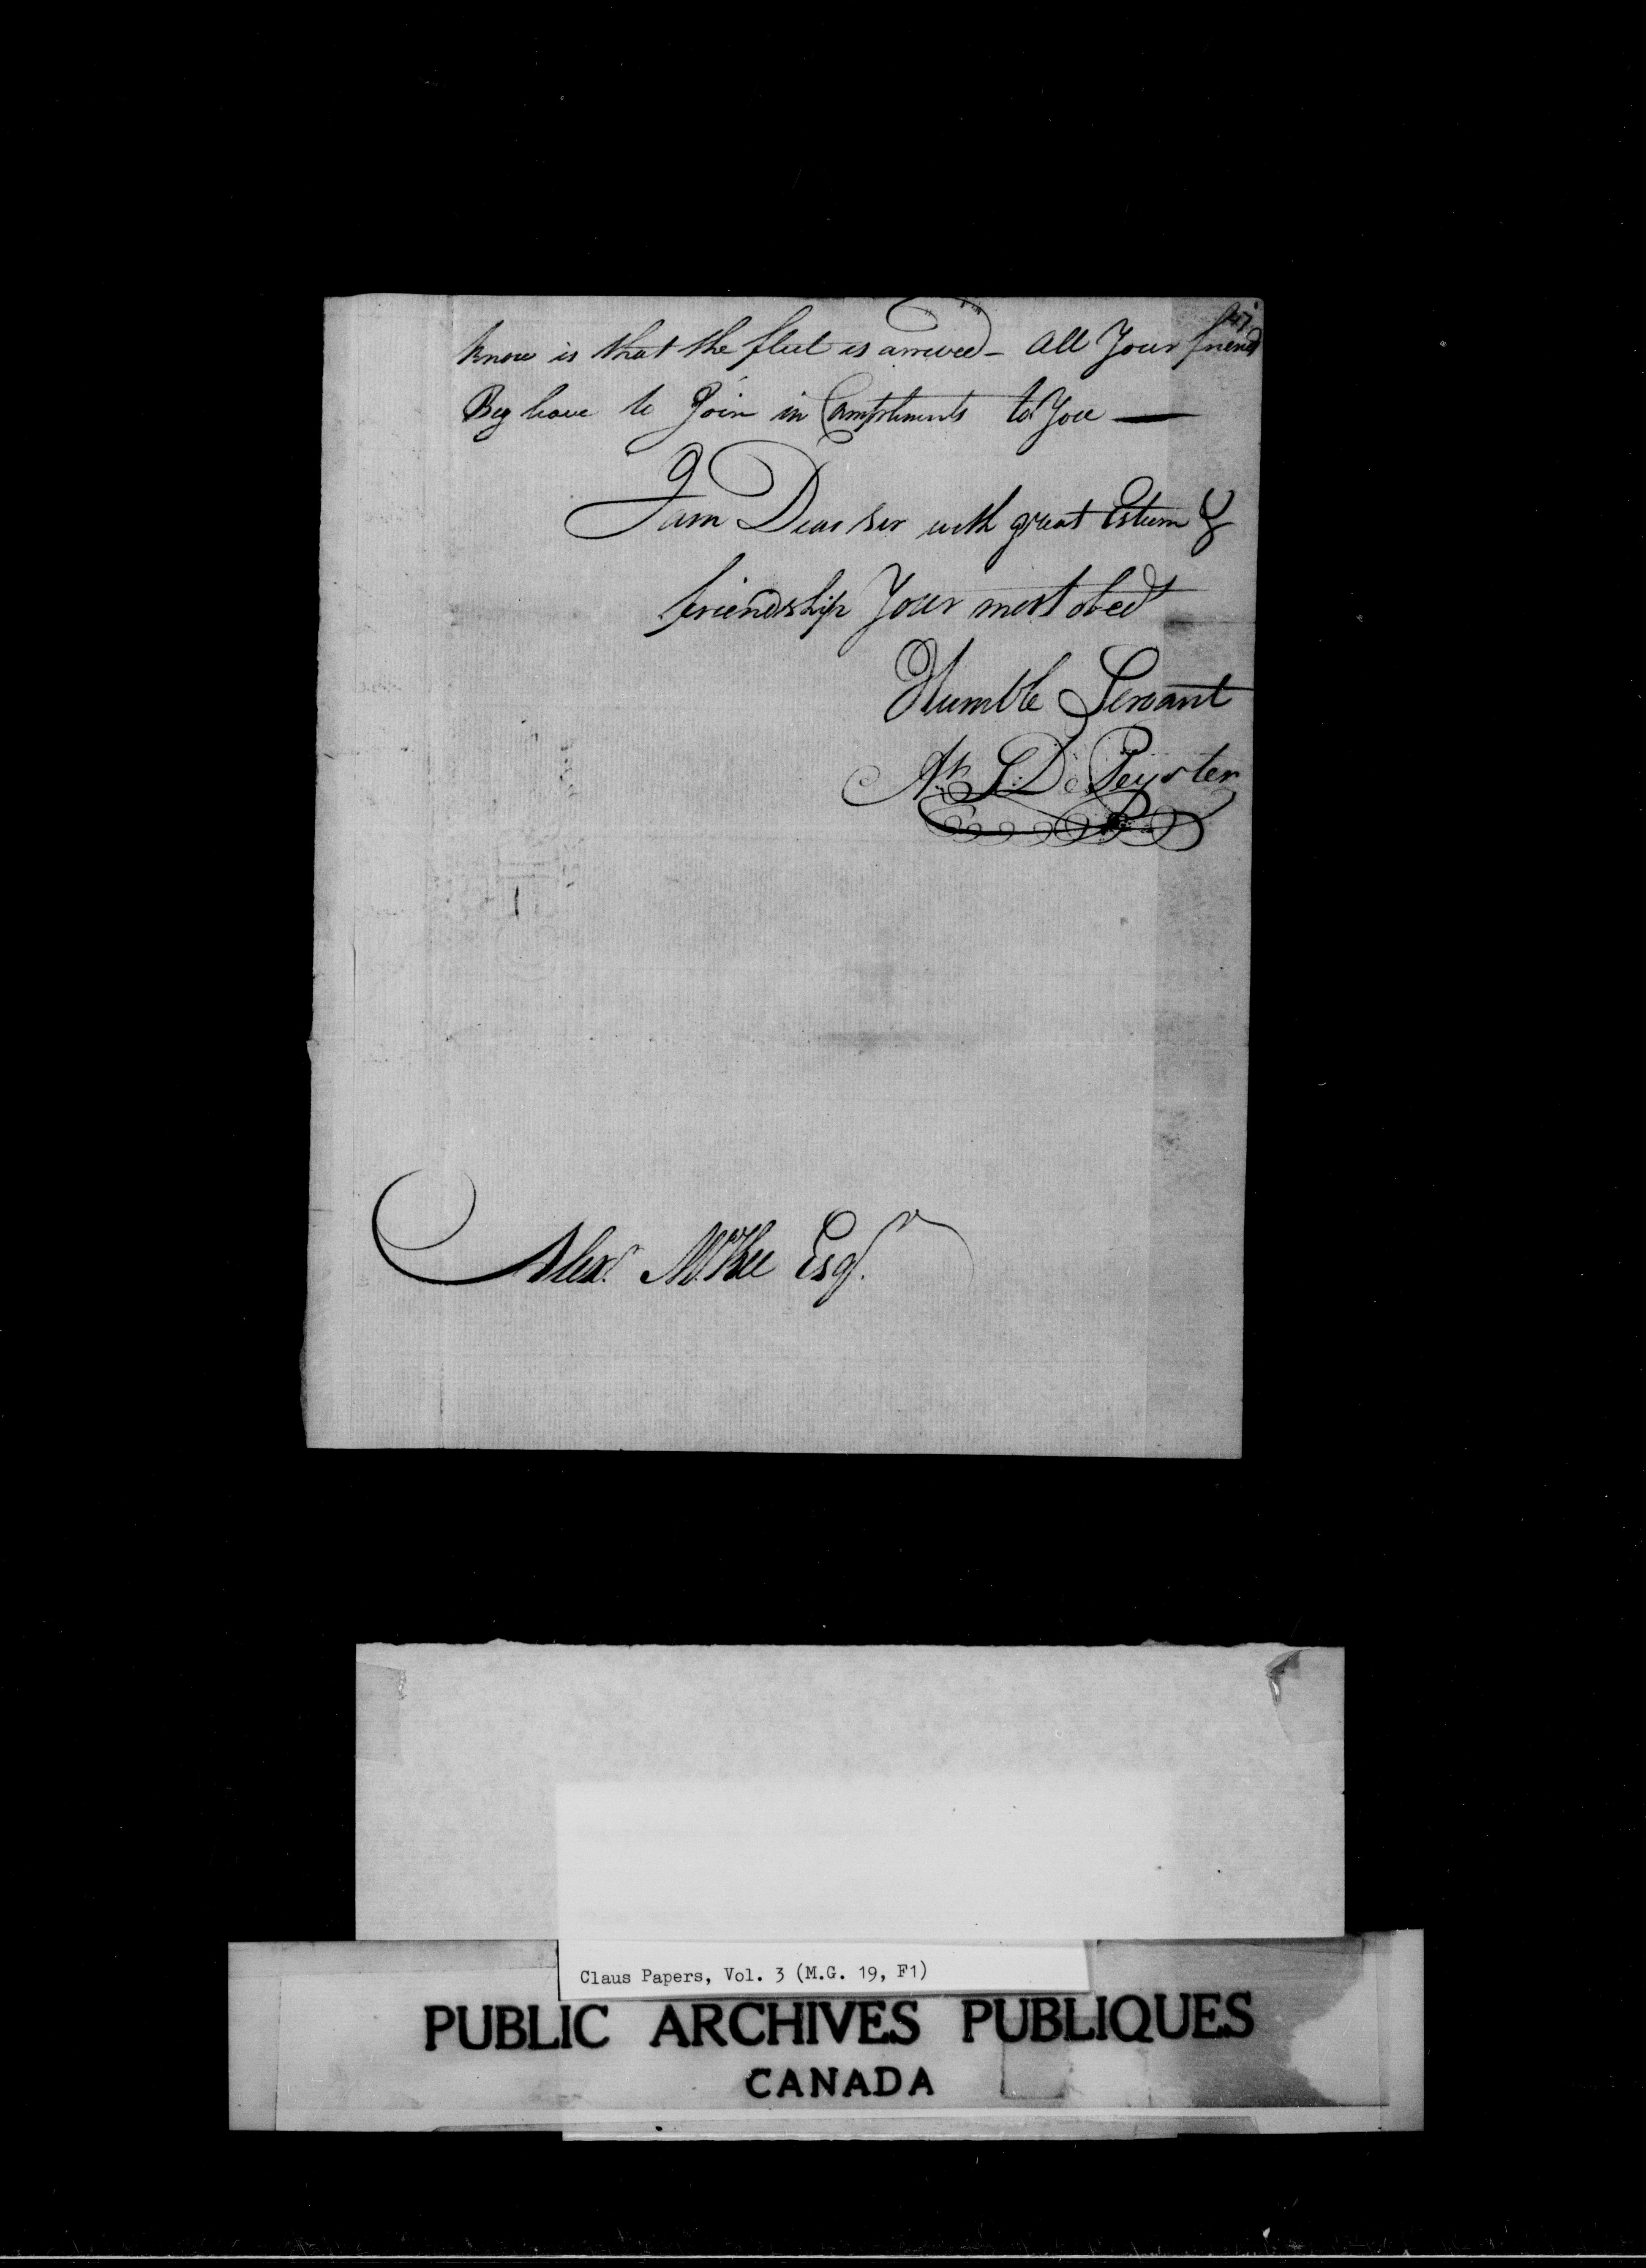 47
know is that the fleet is arrived - All Your friend
Beg leave to Join in Compliments to You —
I am Dear Sir with great Esteem &
friendship Your most obedt
Humble Servant
At S: De Peyster
Alexr McKee Esqr
Claus Papers, Vol. 3 (M.G. 19, F1)
PUBLIC ARCHIVES PUBLIQUES
CANADA